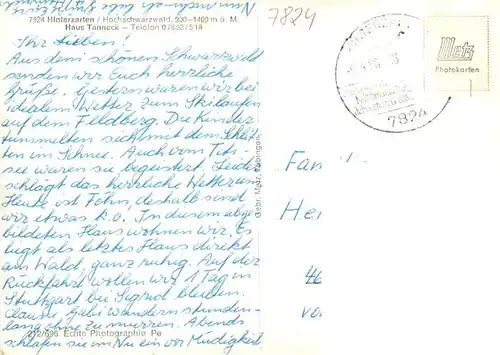 7824
7824 Hinterzarten / Hochschwarzwald, 900-1400 m ü. M.
Haus Tanneck - Telefon 07652/518
Ihr Lieben!
Aus dem schönen Schwarzwald
senden wir Euch herzliche
Grüße. Gestern waren wir bei
idealem Wetter zum Skilaufen
auf dem Feldberg. Die Kinder
tummelten sich mit dem Schlit-
ten im Schnee. Auch vom Titi-
see waren sie begeistert. Leider
schlägt das herrliche Wetter um
Heute ist Föhn, deshalb sind
wir etwas k.o. In diesem abge-
bildeten Haus wohnen wir. Es
liegt als letztes Haus direkt
am Wald, ganz ruhig. Auf der
Rückfahrt wollen wir 1 Tag in
Stuttgart bei Sigrid bleiben.
Claudi, Gabi wandern stunden-
lang ohne zu murren. Abends
schlafen sie im Nu ein vor Müdigkeit
212/696 Echte Photographie
Gebr. Metz, Tübingen
7824
Metz
Photokarten
Fam
He
46